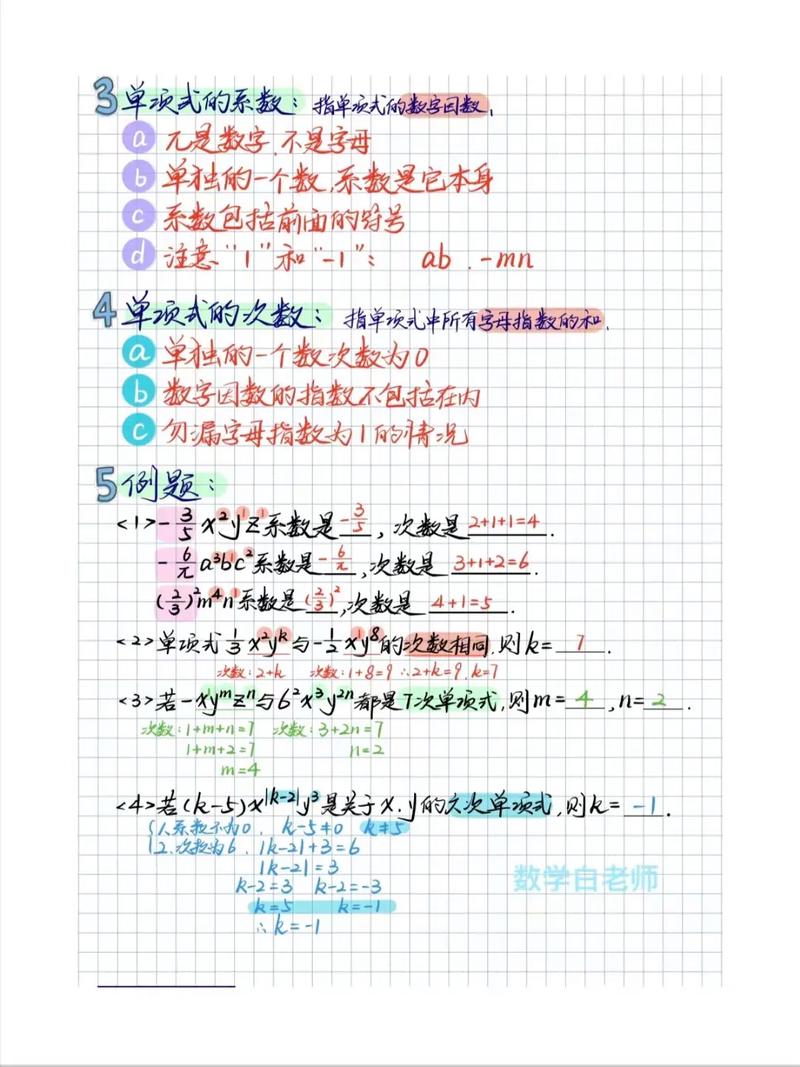 3 单项式的系数：指单项式的数字因数。
a π是数字，不是字母
b 单独的一个数，系数是它本身
c 系数包括前面的符号
d 注意“1”和“-1”： ab . -mn
4 单项式的次数：指单项式中所有字母指数的和.
a 单独的一个数次数为0
b 数字因数的指数不包括在内
c 勿漏字母指数为1的情况
5 例题：
<1> -3/5 x²y¹z¹系数是 -3/5，次数是 2+1+1=4.
-6/π a³b¹c²系数是 -6/π，次数是 3+1+2=6.
(2/3)²m⁴n¹系数是 (2/3)²,次数是 4+1=5.
<2>单项式 1/3 x²yᵏ与-1/2 x¹y⁸的次数相同,则k= 7.
次数:2+k 次数:1+8=9 ∴2+k=9,k=7
<3>若-xyᵐzⁿ与6²x³y²ⁿ都是7次单项式,则m= 4,n= 2.
次数:1+m+n=7 次数:3+2n=7
1+m+2=7 n=2
m=4
<4>若(k-5)x^|k-2|y³是关于x.y的六次单项式,则k= -1.
{1.系数不为0, k-5≠0 k≠5
2.次数为6, |k-2|+3=6
|k-2|=3
k-2=3 k-2=-3
k=5 k=-1
∴k=-1
数学白老师